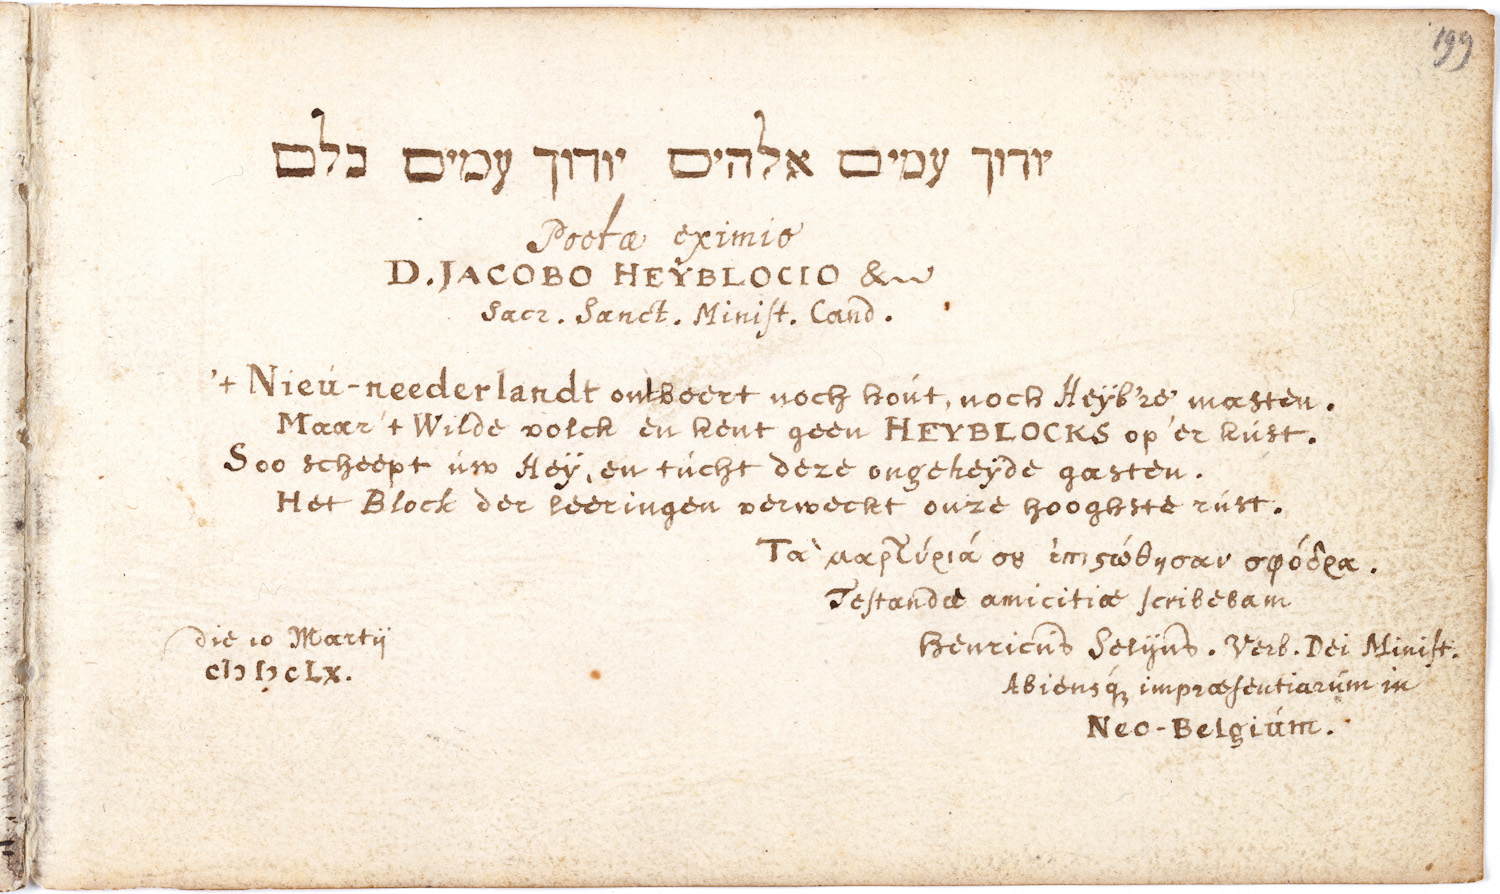 199
יודוך עמים אלהים יודוך עמים כלם
Poetæ eximio
D. JACOBO HEŸBLOCIO &
Sacr. Sanct. Minist. Cand.
't Nieú-neederlandt ontbeert noch hoút, noch Heÿb're masten.
Maar 't Wilde volck en kent geen HEYBLOCKS op 'er kúst.
Soo scheept úw Heÿ, en túcht deze ongeheÿde gasten.
Het Block der leeringen verweckt onze hooghste rúst.
Τὰ μαρτύριά σȣ ἐπιϛώθησαν σφόδρα.
Testandæ amicitiæ scribebam
Henricus Selijns. Verb. Dei Minist.
Abiensq́ꝫ impræsentiarúm in
Neo-Belgiúm.
die 10 Martij
cIↄ Iↄ cLx.